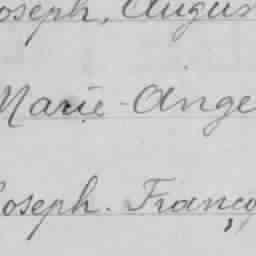 oseph, Augus
Marie-Ange
Joseph. Franço